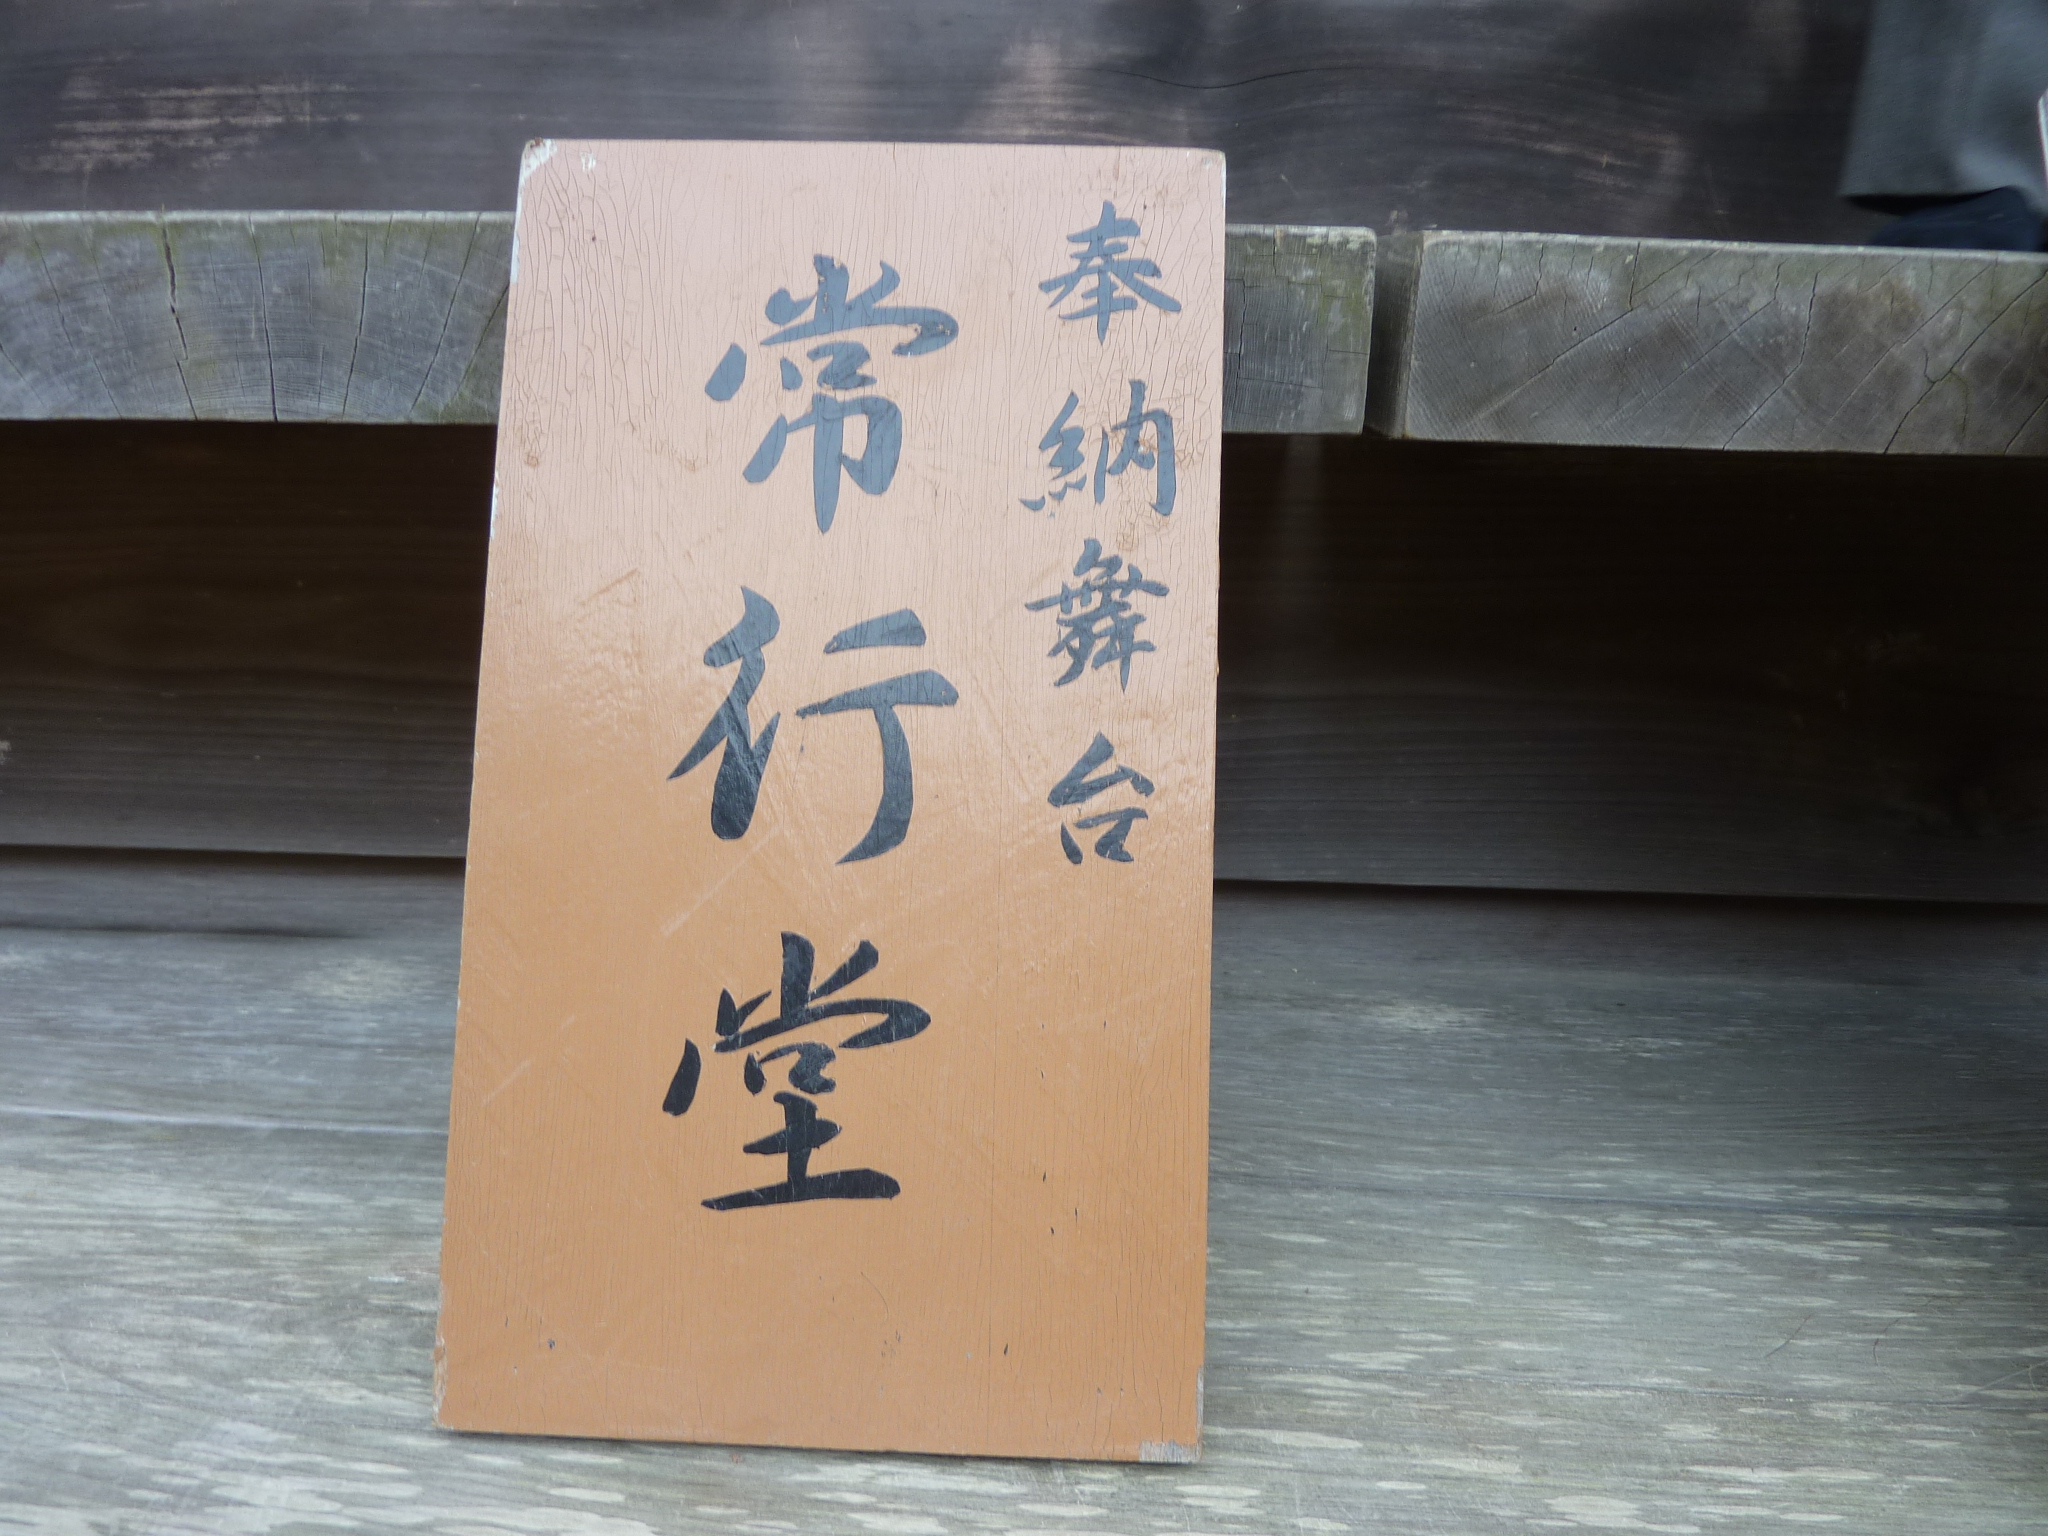 奉納舞台
常行堂